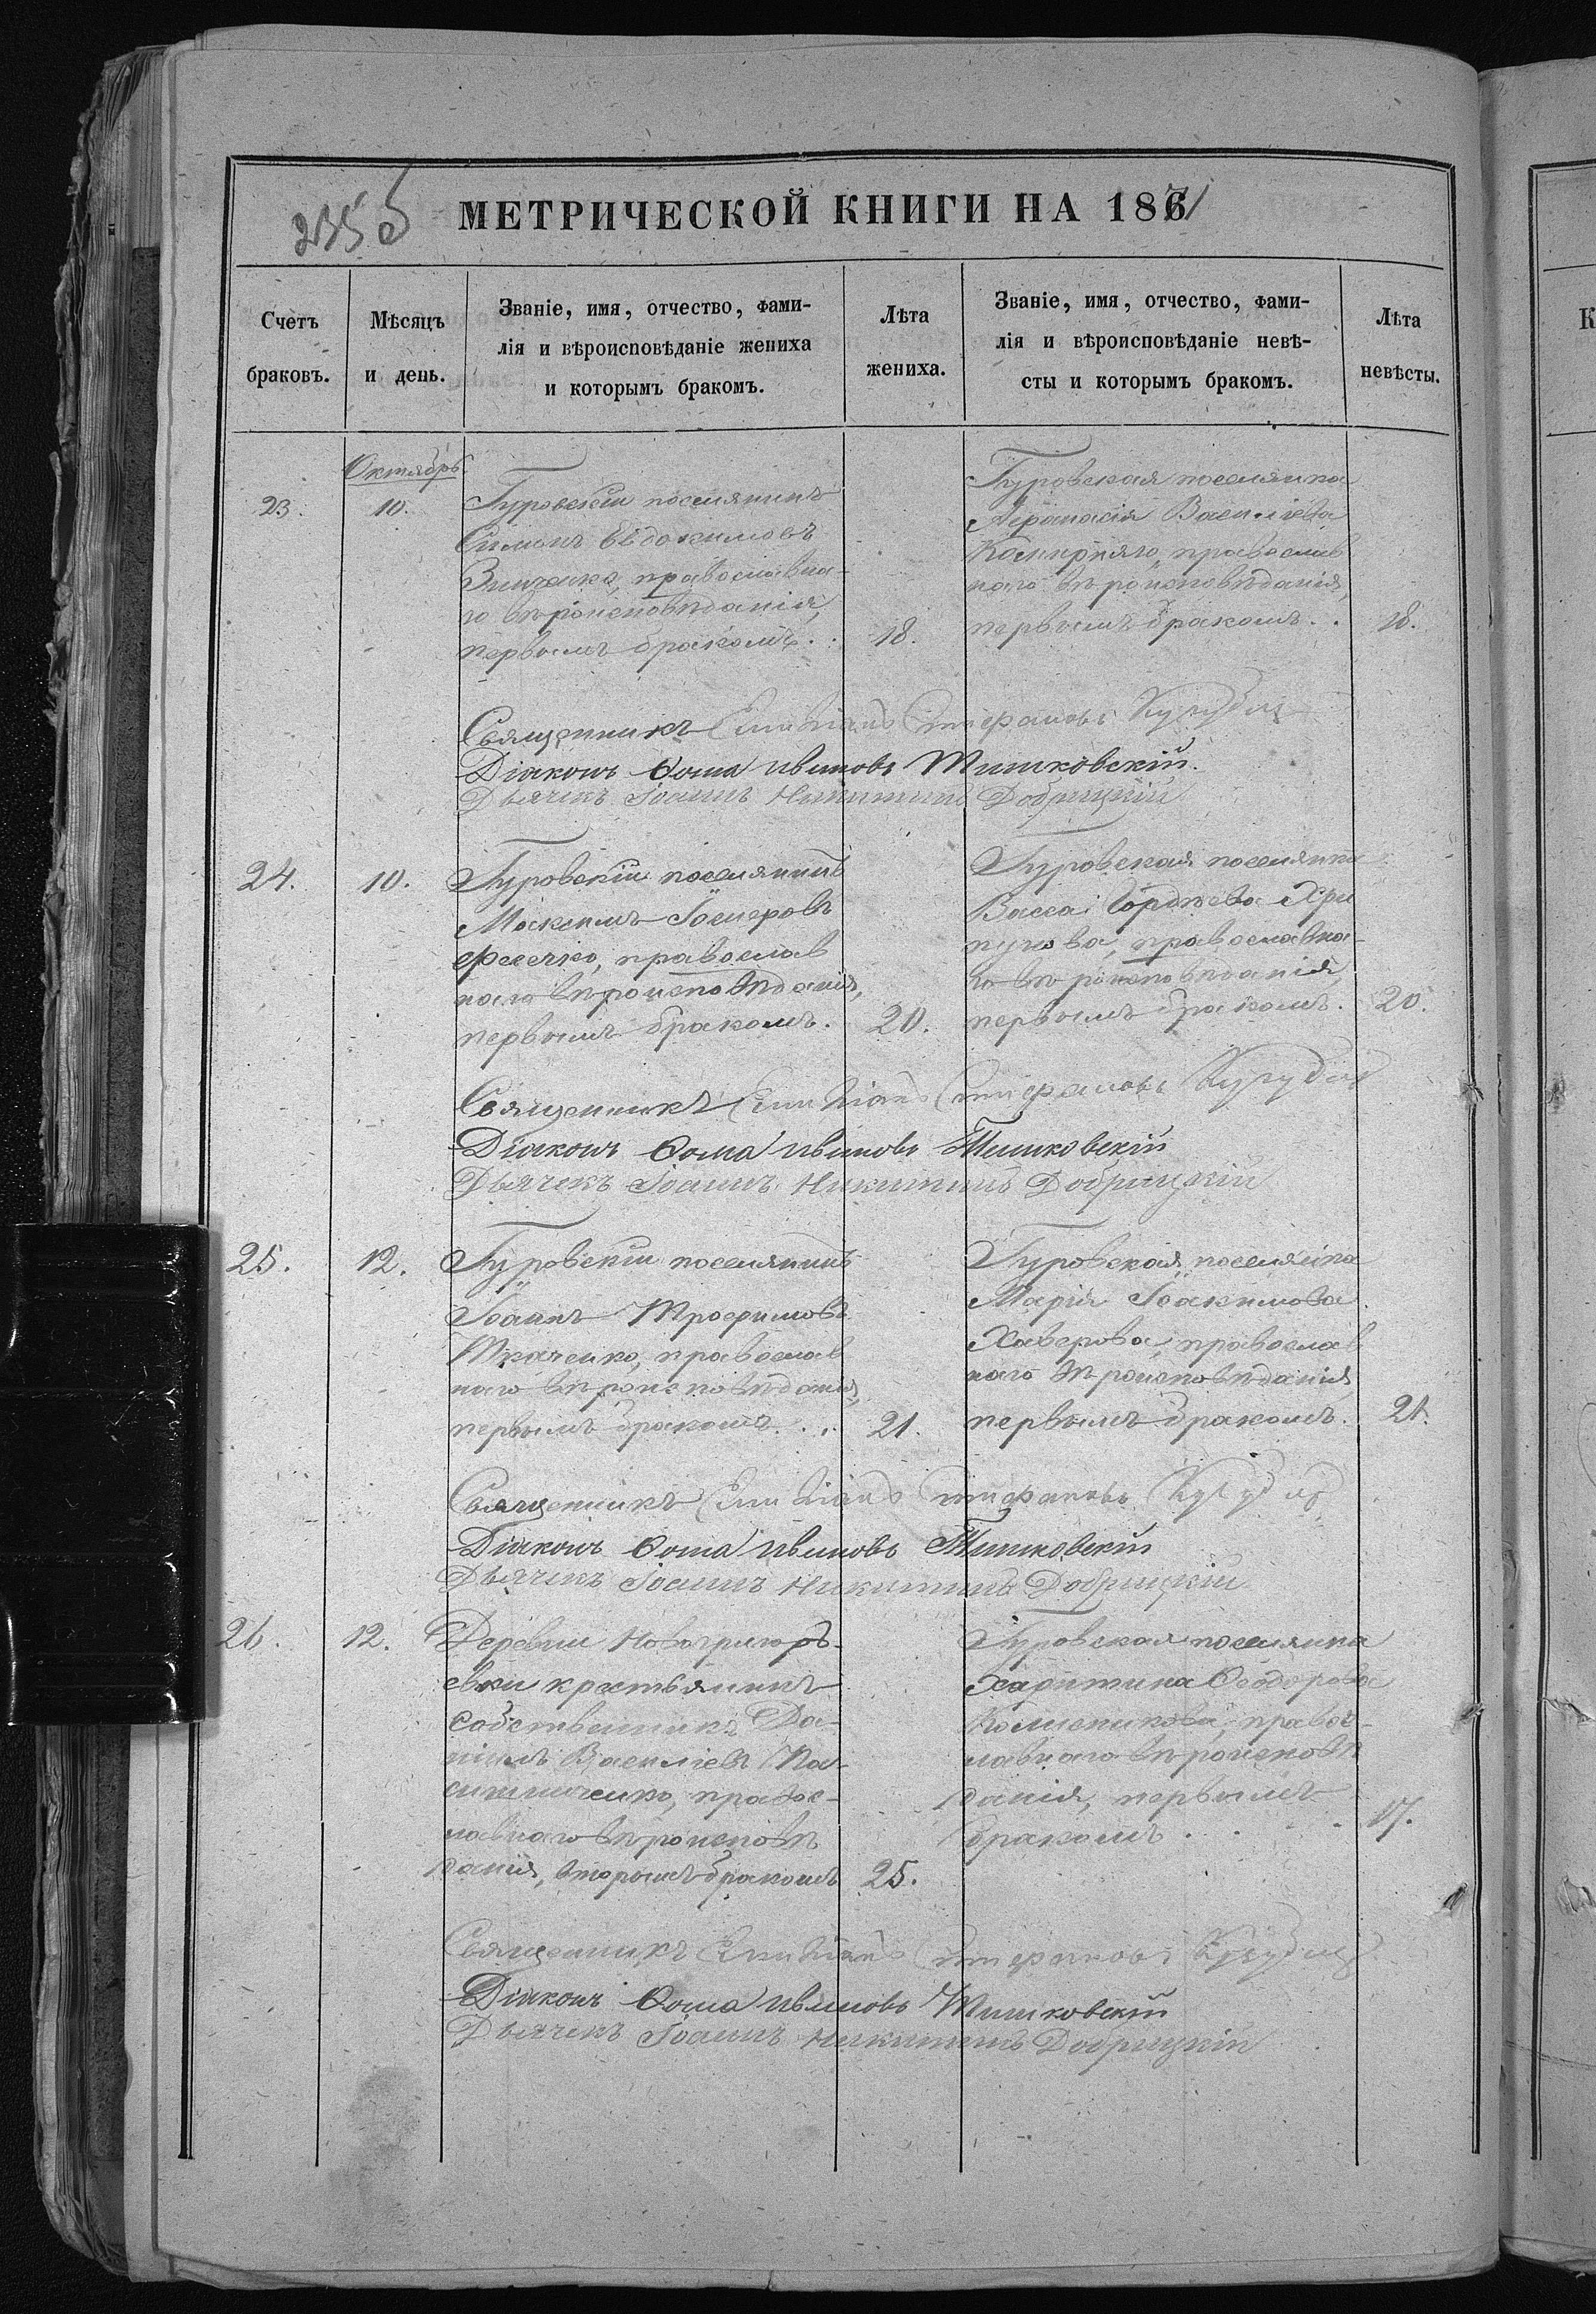 235 б
МЕТРИЧЕСКОЙ КНИГИ НА 1871
Счетъ браковъ.
Мѣсяцъ и день.
Званіе, имя, отчество, фами-
лія и вѣроисповѣданіе жениха
и которымъ бракомъ.
Лѣта жениха.
Званіе, имя, отчество, фами-
лія и вѣроисповѣданіе невѣ-
сты и которымъ бракомъ.
Лѣта невѣсты.
Октябрь
23.
10.
Гуровскій поселянинъ
Симонъ Евдокимовъ
Зинченко, православна-
го вѣроисповѣданія,
первымъ бракомъ..
18.
Гуровская поселянка
Афанасія Василіева
православ
наго вѣроисповѣданія,
первымъ бракомъ..
18.
Священникъ Емиліанъ Стефановъ
Діаконъ Ѳома Ивановъ Тишковскій.
Дьячекъ Іоаннъ Никитинъ Добрицкій
24.
10.
Гуровскій поселянинъ
Максимъ
православ
наго вѣроисповѣданія,
первымъ бракомъ.
20.
Гуровская поселянка
Васса Гордѣева Хри
пунова, православна-
го вѣроисповѣданія,
первымъ бракомъ.
20.
Священникъ Емиліанъ Стефановъ
Діаконъ Ѳома Ивановъ Тишковскій
Дьячекъ Іоаннъ Никитинъ Добрицкій
25.
12.
Гуровскій поселянинъ
Іоаннъ Трофимовъ
Ткаченко, православ
наго вѣроисповѣданія,
первымъ бракомъ...
21.
Гуровская поселянка
Марія Іоакимова
Хаверова, православ
наго вѣроисповѣданія
первымъ бракомъ.
21.
Священникъ Емиліанъ Стефановъ
Діаконъ Ѳома Ивановъ Тишковскій
Дьячекъ Іоаннъ Никитинъ Добрицкій
26.
12.
Деревни Новогригорь-
евки крестьянинъ
собственникъ Да-
ніилъ Василіевъ
правос-
лавнаго вѣроисповѣ
данія, вторымъ бракомъ
25.
Гуровская поселянка
Харитина Ѳеодорова
правос-
лавнаго вѣроисповѣ
данія, первымъ
бракомъ....
17.
Священникъ Емиліанъ Стефановъ
Діаконъ Ѳома Ивановъ Тишковскій
Дьячекъ Іоаннъ Никитинъ Добрицкій